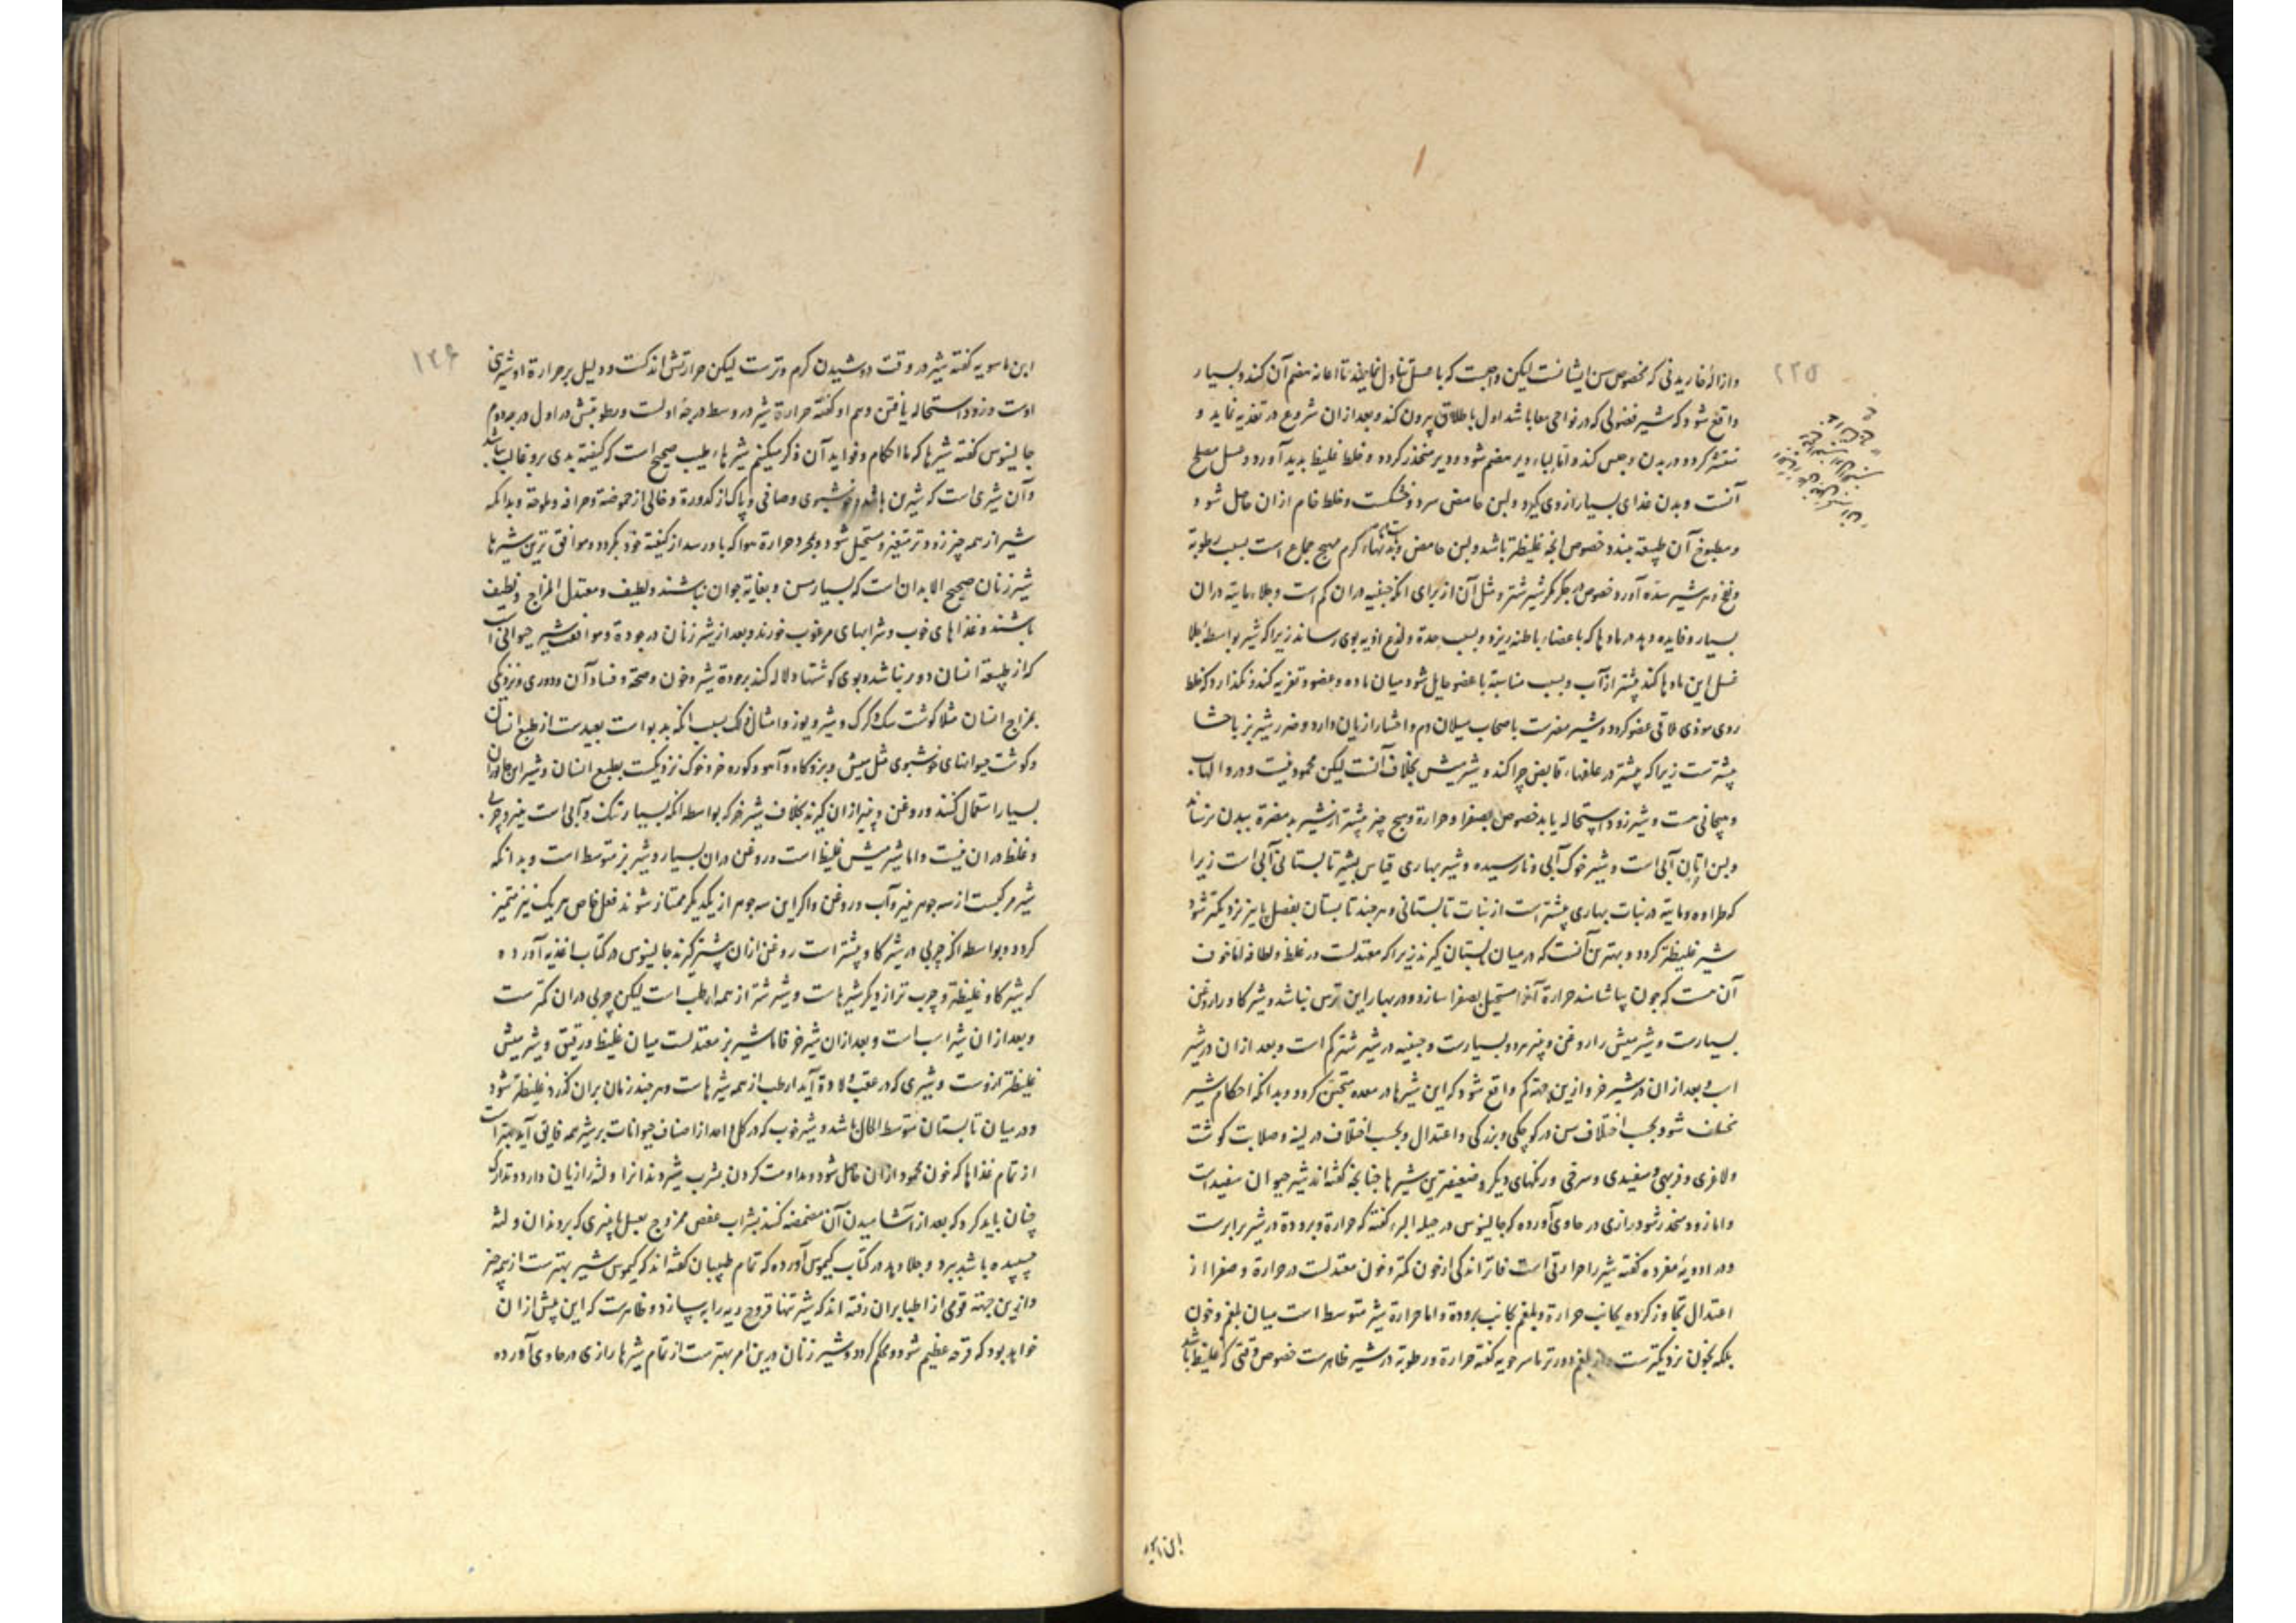 ۲۳۵
وازالهٔ خاریدنی که مخصوص سن ایشانست لیکن واجبست که با عسل تناول نمایند تا اعانه هضم آن کند و بسیار
واقع شود که شیر فضولی که در نواحی معا باشد اول باطلاق بیرون کند و بعد از ان شروع در تغذیه نماید و
کردد در بدن و حبس کند و اما لباء دیر هضم شود و دیر منحدر کردد و خلط غلیظ بدید آورد و عسل مصلح
آنست و بدن غذای بسیار ازوی کیرد و لبن حامض سرد و خشکست و خلط خام ازان حاصل شود
و مطبوخ آن طبیعة ببندد خصوص انچه غلیظتر باشد و لبن حامض کرم مهیج جماع است بسبب رطوبة
و نفخ و هر شیر سده آورد خصوص در جکر مکر شیر شتر و مثل آن از برای انکه جبنیه دران کم است و جلاء مایته دران
بسیار و فایده دهد در مادها که باعضاء باطنه ریزد و بسبب حدة و لذع اذیه بوی رساند زیرا که شیر بواسطهٔ جلا
غسل این مادها کند بیشتر از آب و بسبب مناسبة با عضو حایل شود میان ماده و عضو و تغریه کند و نکذارد که خلط
ردی موذی ملاقی عضو کردد و شیر مضرست باصحاب سیلان دم و احشا را زیان دارد و ضرر شیر بز باحشا
بیشترست زیرا که بیشتر در علفهاء قابض چرا کند و شیر میش بخلاف آنست لیکن محمود نیست و درو التهاب
و هیجانی هست و شیر زود استحاله یابد خصوص بصفرا و حرارة و هیچ چیز بیشتر از شیر بد مضرة ببدن نرساند
و لبن اتان آبی است و شیر خوک آبی و نارسیده و شیر بهاری قیاس بشیر تابستانی آبی است زیرا
که طراوه و مایته در نبات بهاری بیشتر است از نبات تابستانی و هر چند تابستان بفصل پاییز نزدیکتر شود
شیر غلیظتر کردد و بهترین آنست که در میان تابستان کیرند زیرا که معتدلست در غلظ و لطافه اما خوف
آن هست که چون بیاشامند حرارة آنرا مستحیل بصفرا سازد و در بهار این ترس نباشد و شیر کاو را روغن
بسیارست و شیر میش را روغن و پنیر هردو بسیارست و جبنیه در شیر شتر کم است و بعد ازان در شیر
اسب و بعد ازان در شیر خر و ازین جهة کم واقع شود که این شیرها در معده متجبن کردد و بدانکه احکام شیر
مختلف شود بحسب اختلاف سن در کوچکی و بزرکی و اعتدال و بحسب اختلاف در لینه و صلابت کوشت
و لاغری و فربهی و سفیدی و سرخی و رنکهای دیکر و ضعیفترین شیرها چنانچه کفته‌اند شیر حیوان سفید است
و اما زود منحدر شود و رازی در حاوی آورده که جالینوس در حیلة البرء کفته که حرارة و برودة در شیر برابرست
و در ادویهٔ مفرده کفته شیر را حرارتی است فاتر اندکی از خون کمتر و خون معتدلست در حرارة و صفرا از
اعتدال تجاوز کرده بجانب حرارة و بلغم بجانب برودة و اما حرارة شیر متوسط است میان بلغم و خون
بلکه بخون نزدیکترست و از بلغم دورتر ماسرجویه کفته حرارة و رطوبة در شیر ظاهرست خصوص وقتی که غلیظ باشد
ابن ماسویه
۱۳۶
ابن ماسویه کفته شیر در وقت دوشیدن کرم و ترست لیکن حرارتش اندکست و دلیل بر حرارة او شیرینی
اوست و زود استحاله یافتن و هم او کفته حرارة شیر در وسط درجهٔ اولست و رطوبتش در اول درجهٔ دوم
جالینوس کفته شیرها که ما احکام و فواید آن ذکر میکنیم شیرهاء طیب صحیح است که کیفیته بدی برو غالب نباشد
و آن شیری است که شیرین باشد و خوشبوی و صافی و پاک از کدورة و خالی از حموضة و حرافه و ملوحة و بدانکه
شیر از همه چیز زودتر متغیر و مستحیل شود و بمجرد حرارة هوا که باو رسد از کیفیته خود بکردد و موافق‌ترین شیرها
شیر زنان صحیح الابدان است که بسیار مسن و بغایة جوان نباشند و لطیف و معتدل المزاج و نظیف
باشند و غذاهای خوب و شرابهای مرغوب خورند و بعد از شیر زنان در جودة و موافقت شیر حیوانی است
که از طبیعة انسان دور نباشد و بوی کوشتها دلاله کند بر جودة شیر و خون و صحة و فساد آن و دوری و نزدیکی
بمزاج انسان مثلا کوشت سک و کرک و شیر و یوز و امثال ذلک بسبب انکه بدبو است بعیدست از طبع انسان
و کوشت حیوانهای خوشبوی مثل میش و بز و کاو و آهو و کوره خر و خوک نزدیکست بطبع انسان و شیر این جانوران
بسیار استعمال کنند و روغن و پنیر ازان کیرند بخلاف شیر خر که بواسطه انکه بسیار تنک و آبی است پنیر و چربی
و غلظ دران نیست و اما شیر میش غلیظ است و روغن دران بسیار و شیر بز متوسط است و بدانکه
شیر مرکبست از سه جوهر پنیر و آب و روغن و اکر این سه جوهر از یکدیکر ممتاز شوند فعل خاص هریک نیز متمیز
کردد و بواسطه انکه چربی در شیر کاو بیشتر است روغن ازان بیشتر کیرند جالینوس در کتاب اغذیه آورده
که شیر کاو غلیظتر و چرب‌تر از دیکر شیرهاست و شیر شتر از همه ارطب است لیکن چربی دران کمترست
و بعد ازان شیر اسب است و بعد ازان شیر خر فاما شیر بز معتدلست میان غلیظ و رقیق و شیر میش
غلیظتر ازوست و شیری که در عقب ولادة آید ارطب از همه شیرهاست و هر چند زمان بران کذرد غلیظتر شود
و در میان تابستان متوسط الحال باشد و شیر خوب که در کل واحد از اصناف حیوانات بر شیر همه فایق آید بهتر است
از تمام غذاها که خون محمود ازان حاصل شود و مداومت کردن بشرب شیر دندانرا و لثه را زیان دارد و تدارک
چنان باید کرد که بعد از آشامیدن آن مضمضه کنند بشراب عفص ممزوج بعسل تا پنیری که بر دندان و لثه
چسپیده باشد ببرد و جلا دهد در کتاب کیموس آورده که تمام طبیبان کفته‌اند که کیموس شیر بهترست از همه چیز
و ازین جهة قومی از اطبا بران رفته اند که شیر تنها قروح ریه را به سازد و ظاهرست که این پیش ازان
خواهد بود که قرحه عظیم شود و محکم کردد و شیر زنان درین امر بهترست از تمام شیرها رازی در حاوی آورده